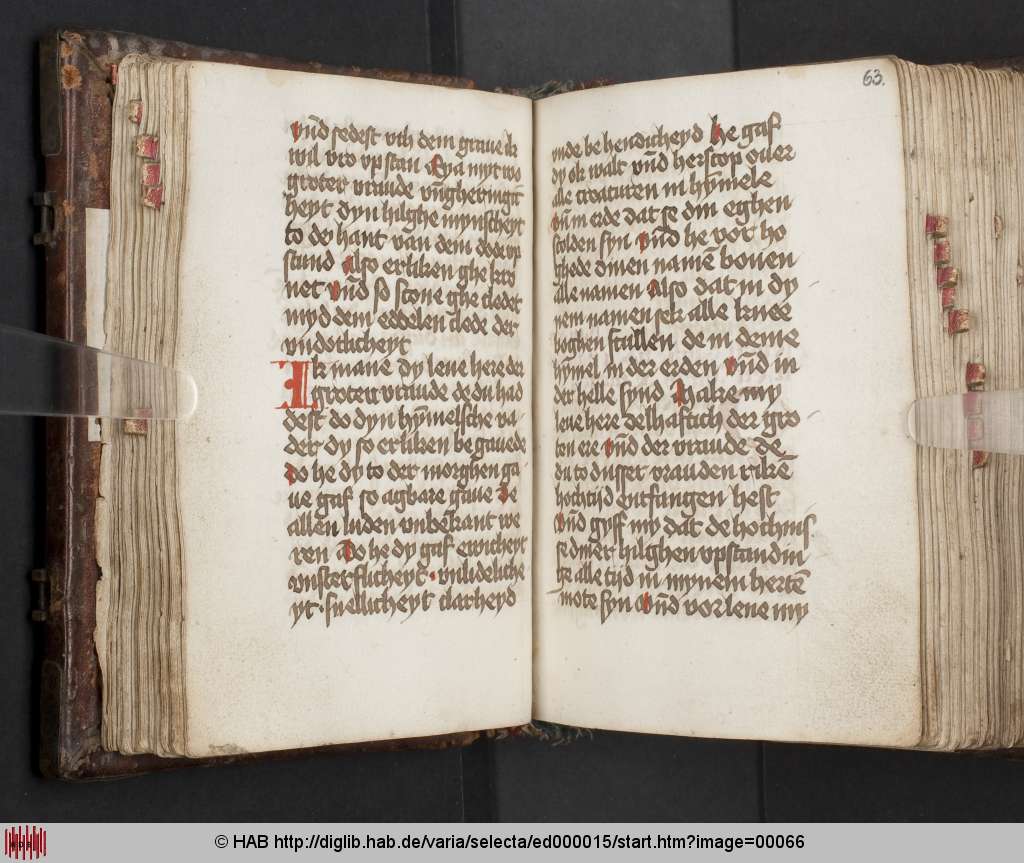 vn̄d sedest vth dem graue ik
wil vro vp stan Eya myt wo
groter vraude vn̄gheringit
heyt dyn hilghe mynscheyt
to der hant van dem dode vp
stund also erliken ghe kro
net vn̄d so scone ghe cledet
myd dem eddelen clede der
vndotlicheyt
Ik mane dy leue here der
groten vraude de du had
dest do dyn hȳmelsche va
der dy so erliken be gauede
do he dy to der morghen ga
ue gaf so agbare gaue de
allen luden vnbekant we
ren do he dy gaf ewicheyt
vnsterflicheyt vnlideliche
yt snellicheyt clarheyd
63.
vnde be hendicheyd he gaf
dy ok walt vn̄d herscop ouer
alle creaturen in hȳmele
vn̄ in erde dat se din eghen
scolden syn vn̄d he vor ho
ghede dinen namē bouen
alle namen also dat in dy
nem namen sek alle knee
boghen scullen de in deme
hȳmel in der erden vn̄d in
der helle synd Make my
leue here delhaftich der gro
ten ere vn̄d der vraude de
du to dusser vrauden rikē
hochtijd entfangen hest
vn̄d gyff my dat de hochnis
se diner hilghen vpstandin
ge alle tijd in mynem hertē
mote syn vn̄d vorlene my
© HAB http://diglib.hab.de/varia/selecta/ed000015/start.htm?image=00066